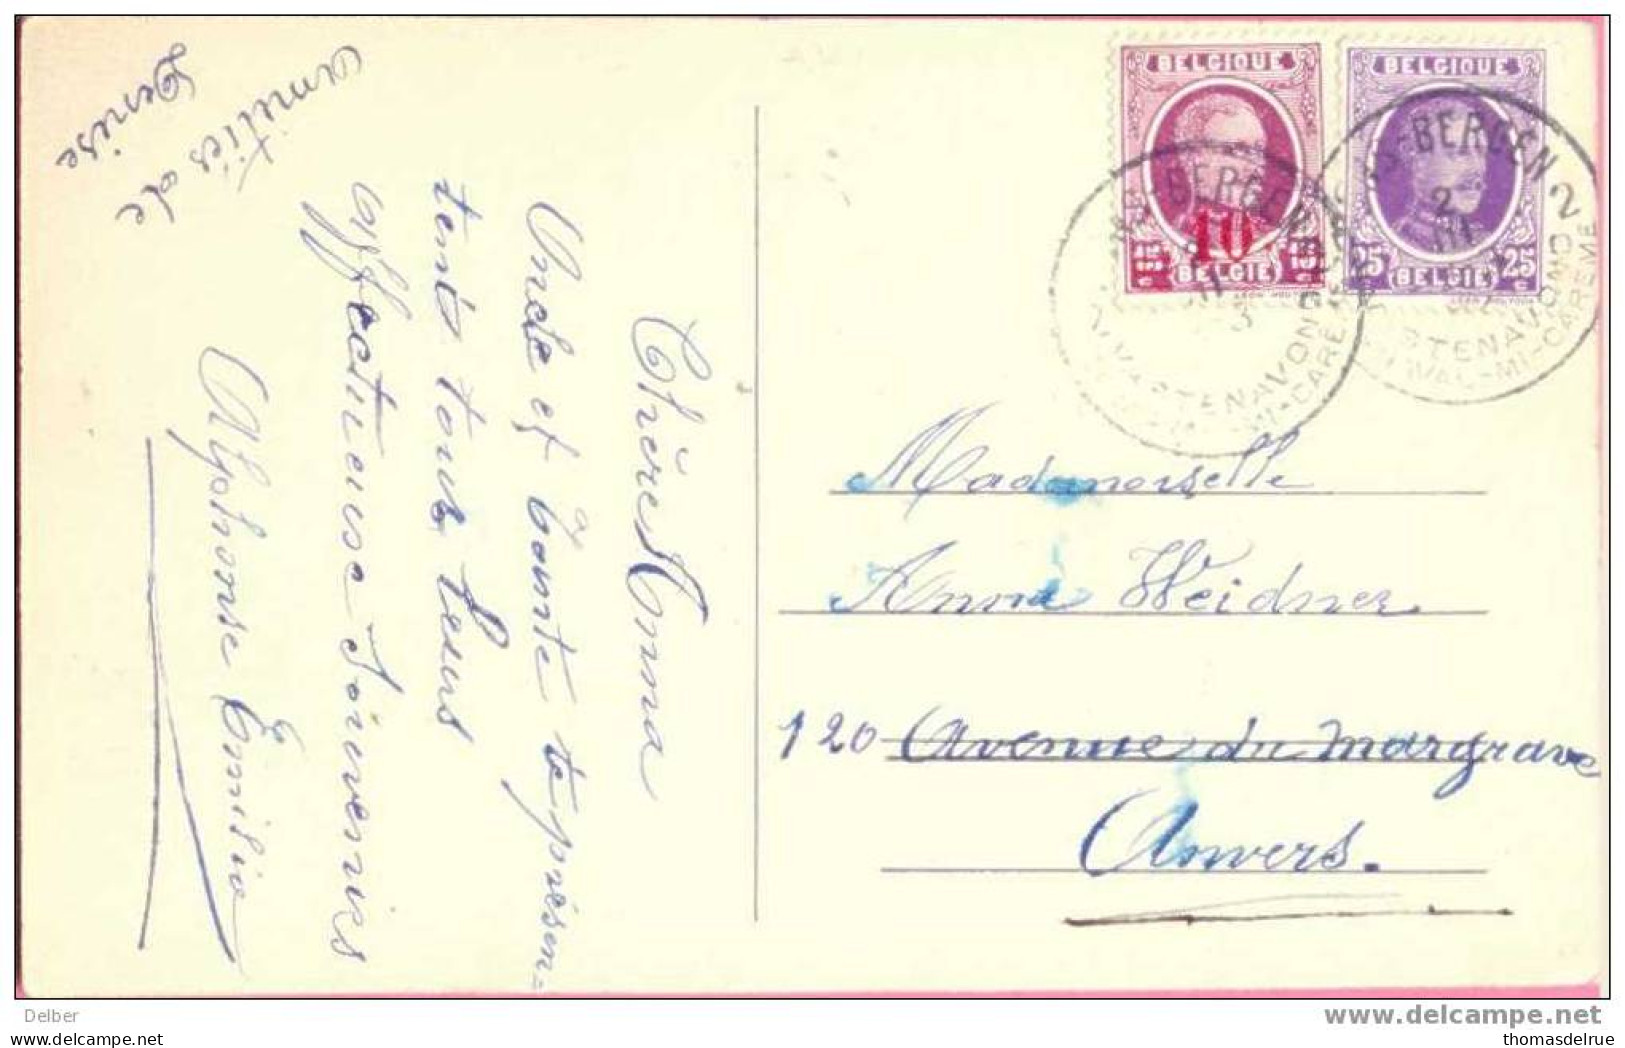 Chère Anna
Oncle et Tante te présen=
tent tous leurs
affectueuse souvenirs
Alphonse Emilia
Amitiés de
Denise
BELGIQUE
10
15 BELGIË 15
BELGIQUE
25 BELGIË 25
BERGEN 2
2
III
VASTENAVOND
CARNAVAL-MI-CARÊME
Mademoiselle
Anna Weidner
120 Avenue du Margrave
Anvers.
Delber
www.delcampe.net
thomasdelrue